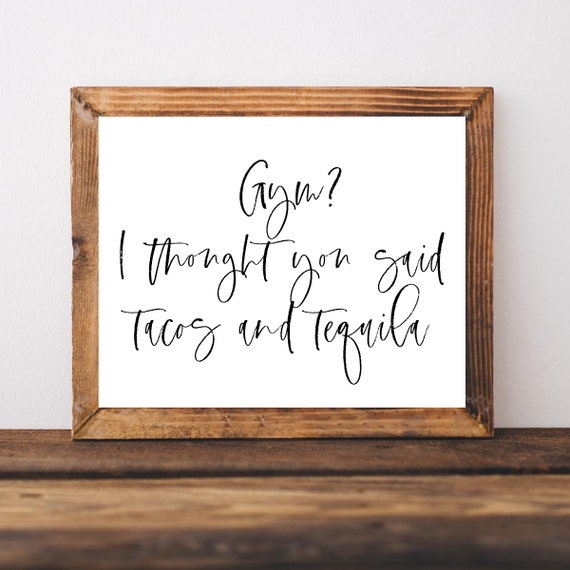 Gym?
I thought you said
Tacos and Tequila